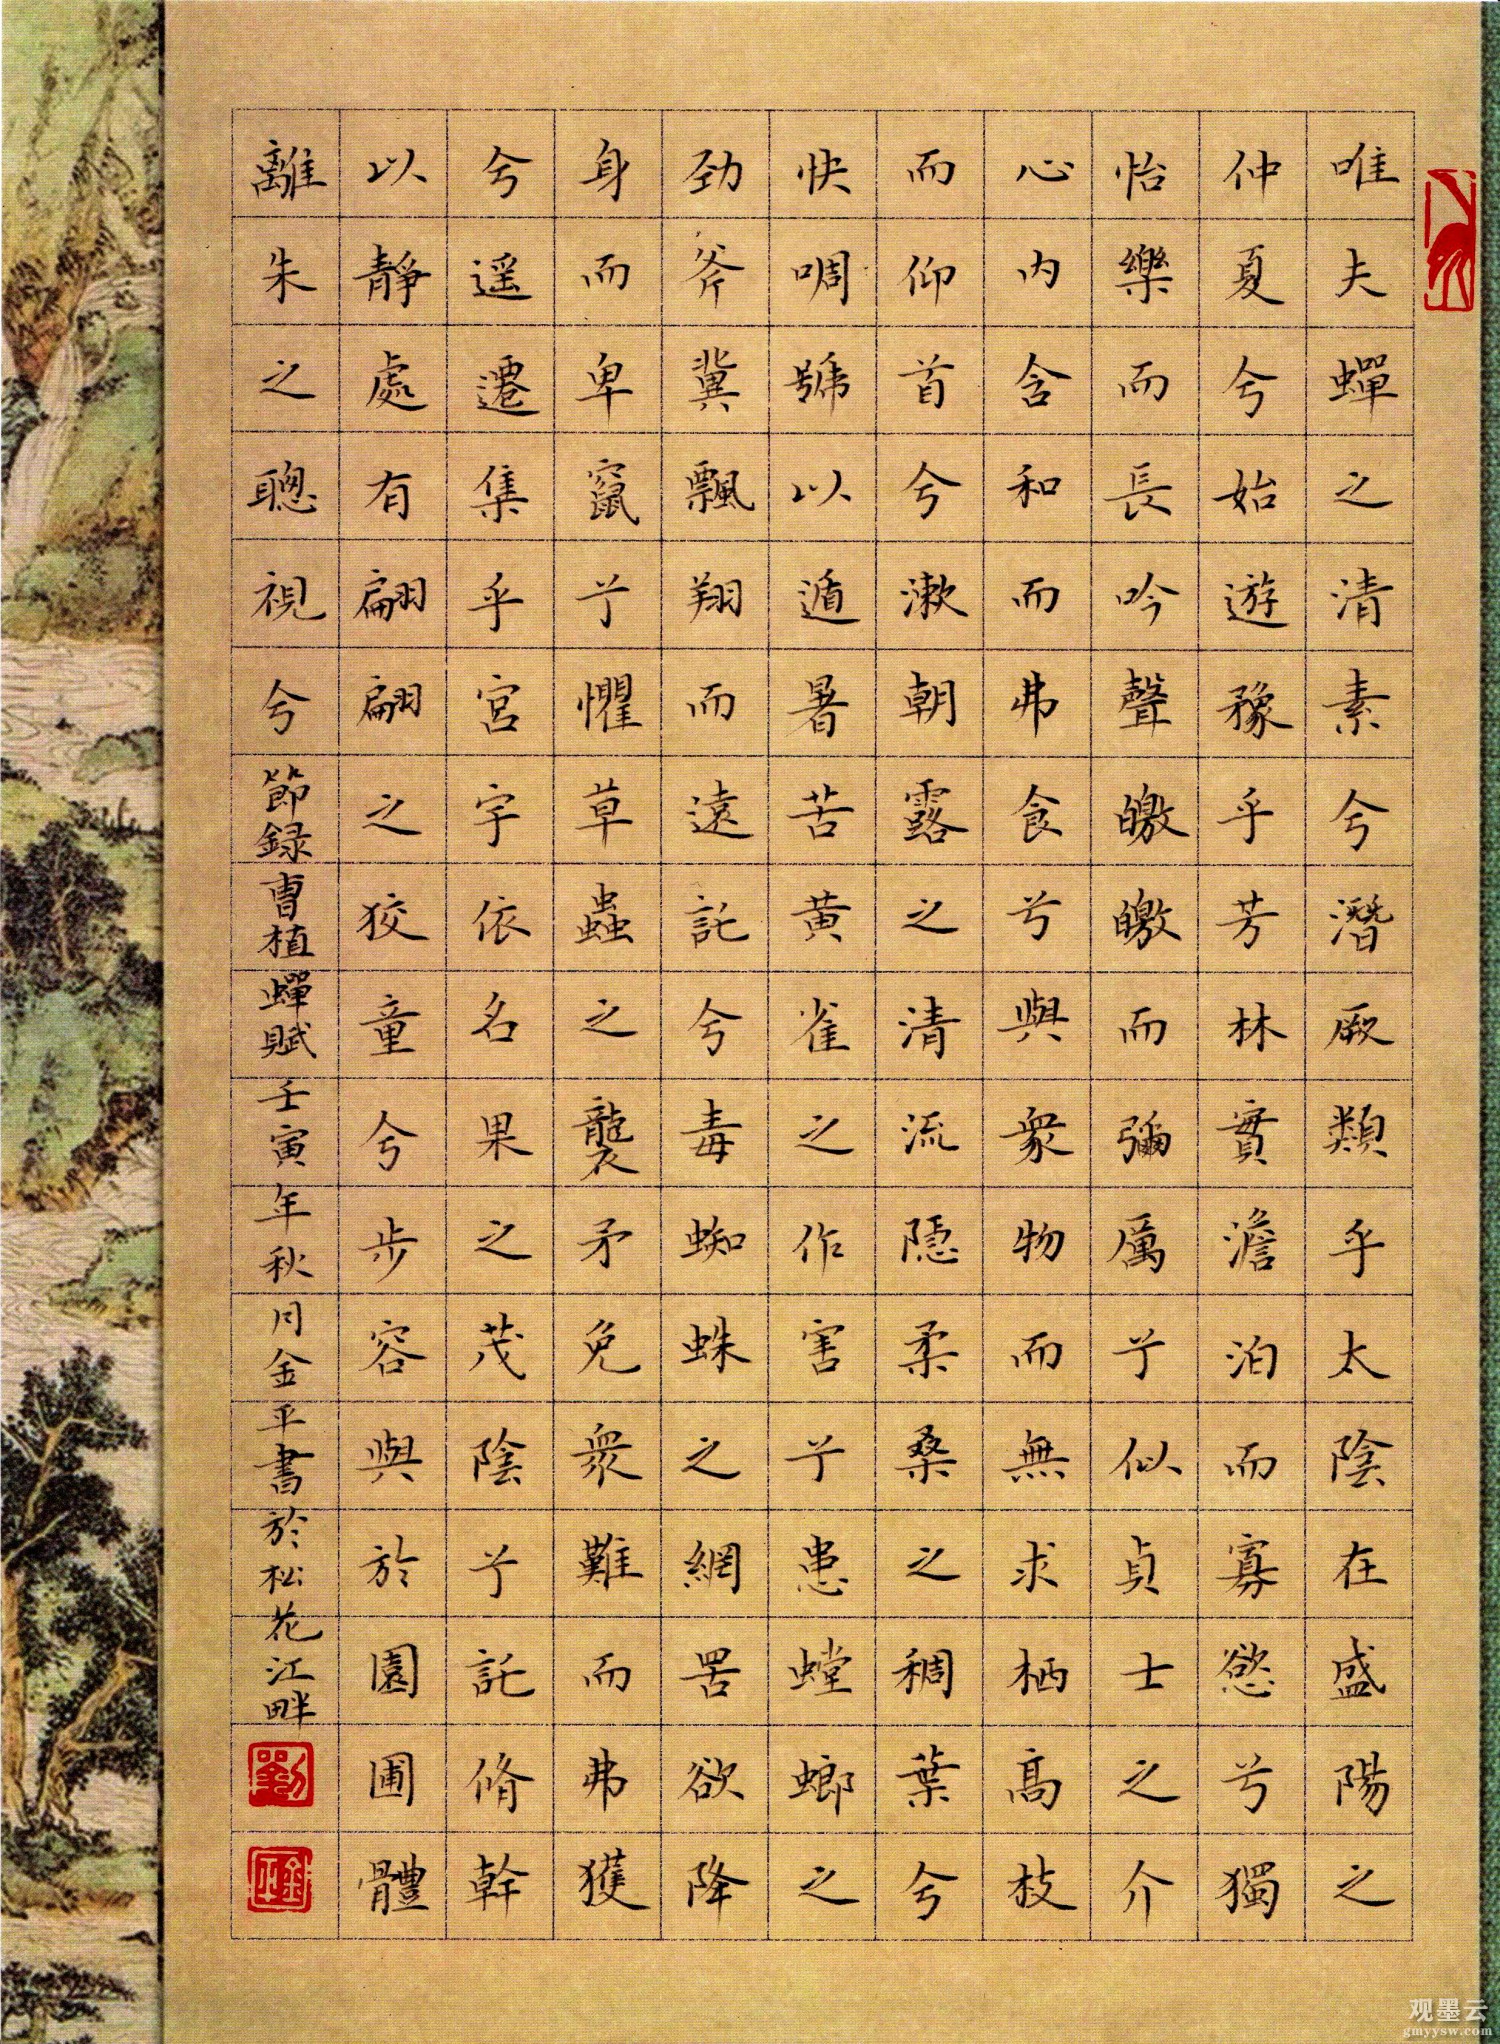 唯夫蟬之清素兮潛厥類乎太陰在盛陽之
仲夏兮始遊豫乎芳林實澹泊而寡慾兮獨
怡樂而長吟聲皦皦而彌厲兮似貞士之介
心内含和而弗食兮與衆物而無求栖高枝
而仰首兮漱朝露之清流隱柔桑之稠葉兮
快啁號以遁暑苦黄雀之作害兮患螳螂之
劲斧冀飄翔而遠託兮毒蜘蛛之網罟欲降
身而卑竄兮懼草蟲之襲矛免衆難而弗獲
兮遥遷集乎宮宇依名果之茂陰兮託脩幹
以靜處有翩翩之狡童兮步容與於園圃體
離朱之聰視兮節録曹植蟬賦壬寅年秋月金平書於松花江畔
劉
金平
观墨云
gmyysw.com